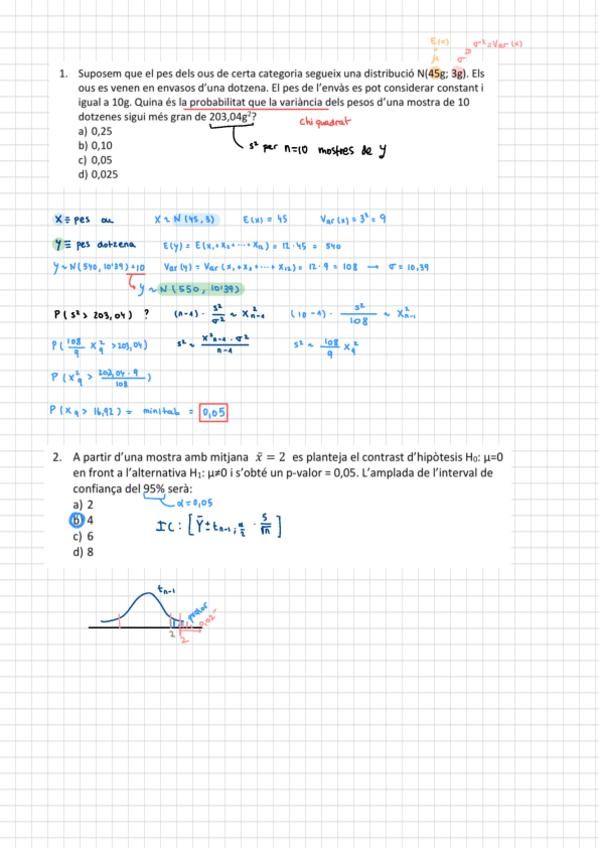 E(x)
μ
σ
σ²=Var(x)
1. Suposem que el pes dels ous de certa categoria segueix una distribució N(45g; 3g). Els
ous es venen en envasos d'una dotzena. El pes de l'envàs es pot considerar constant i
igual a 10g. Quina és la probabilitat que la variància dels pesos d'una mostra de 10
dotzenes sigui més gran de 203,04g²?
chi quadrat
a) 0,25
b) 0,10
s² per n=10 mostres de y
c) 0,05
d) 0,025
X ≡ pes ou X ~ N(45,3) E(x) = 45 Var(x) = 3² = 9
Y ≡ pes dotzena E(y) = E(x₁+x₂+···+x₁₂) = 12·45 = 540
y ~ N(540, 10'39)+10 Var(y) = Var(x₁+x₂+···+x₁₂) = 12·9 = 108 → σ = 10,39
y ~ N(550, 10'39)
P(s² > 203,04) ? (n-1)· s²/σ² ~ X²n-1 (10-1)· s²/108 ~ X²n-1
P(108/9 X²9 > 203,04) s² ~ X²n-1·σ²/n-1 s² ~ 108/9 X²9
P(X²9 > 203,04·9/108)
P(X9 > 16,92) = minitab = 0,05
2. A partir d'una mostra amb mitjana x̄ = 2 es planteja el contrast d'hipòtesis H₀: μ=0
en front a l'alternativa H₁: μ≠0 i s'obté un p-valor = 0,05. L'amplada de l'interval de
confiança del 95% serà:
a) 2
α=0,05
b) 4
IC: [Ȳ ± tn-1; α/2 · S/√n]
c) 6
d) 8
tn-1
2
2